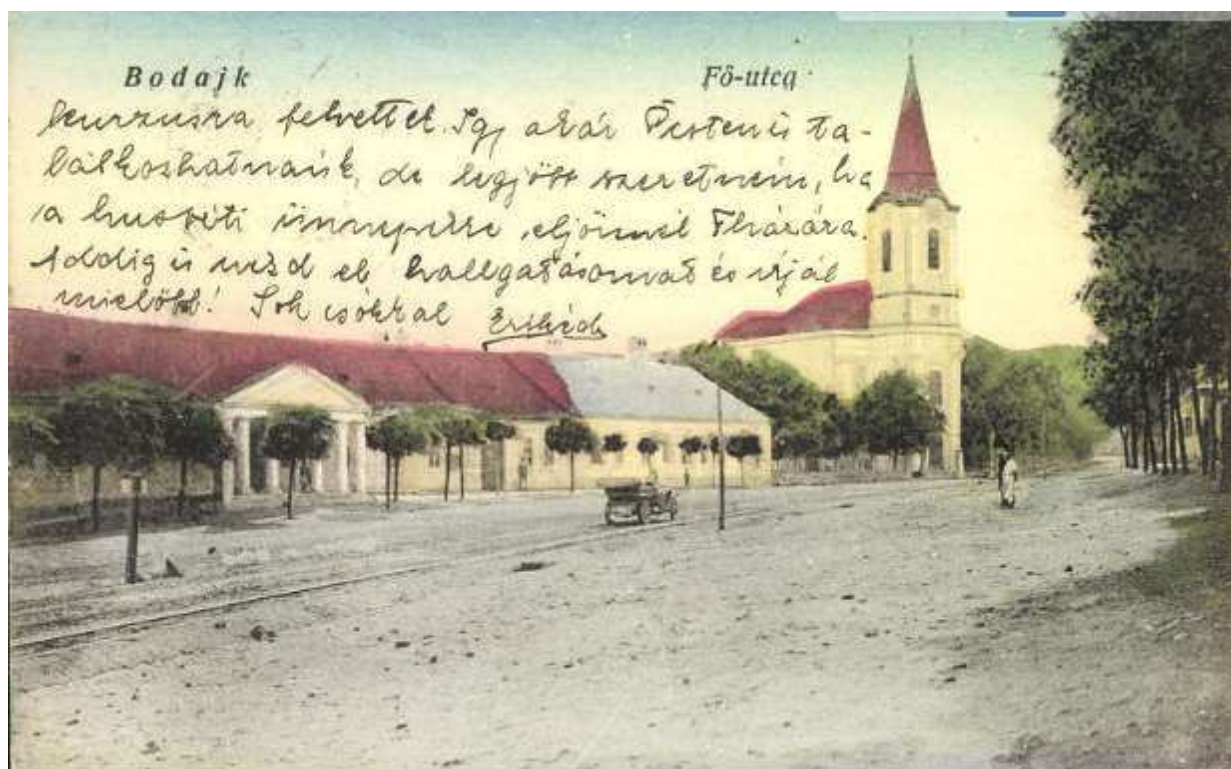 Bodajk
Fő-utca
kurzusra felvettek. Így akár Pesten is ta-
lálkozhatnánk, de legjobb szeretném, ha
a husvéti ünnepekre eljönnél
Addig is nézd el hallgatásomat és írjál
mielőbb! Sok csókkal